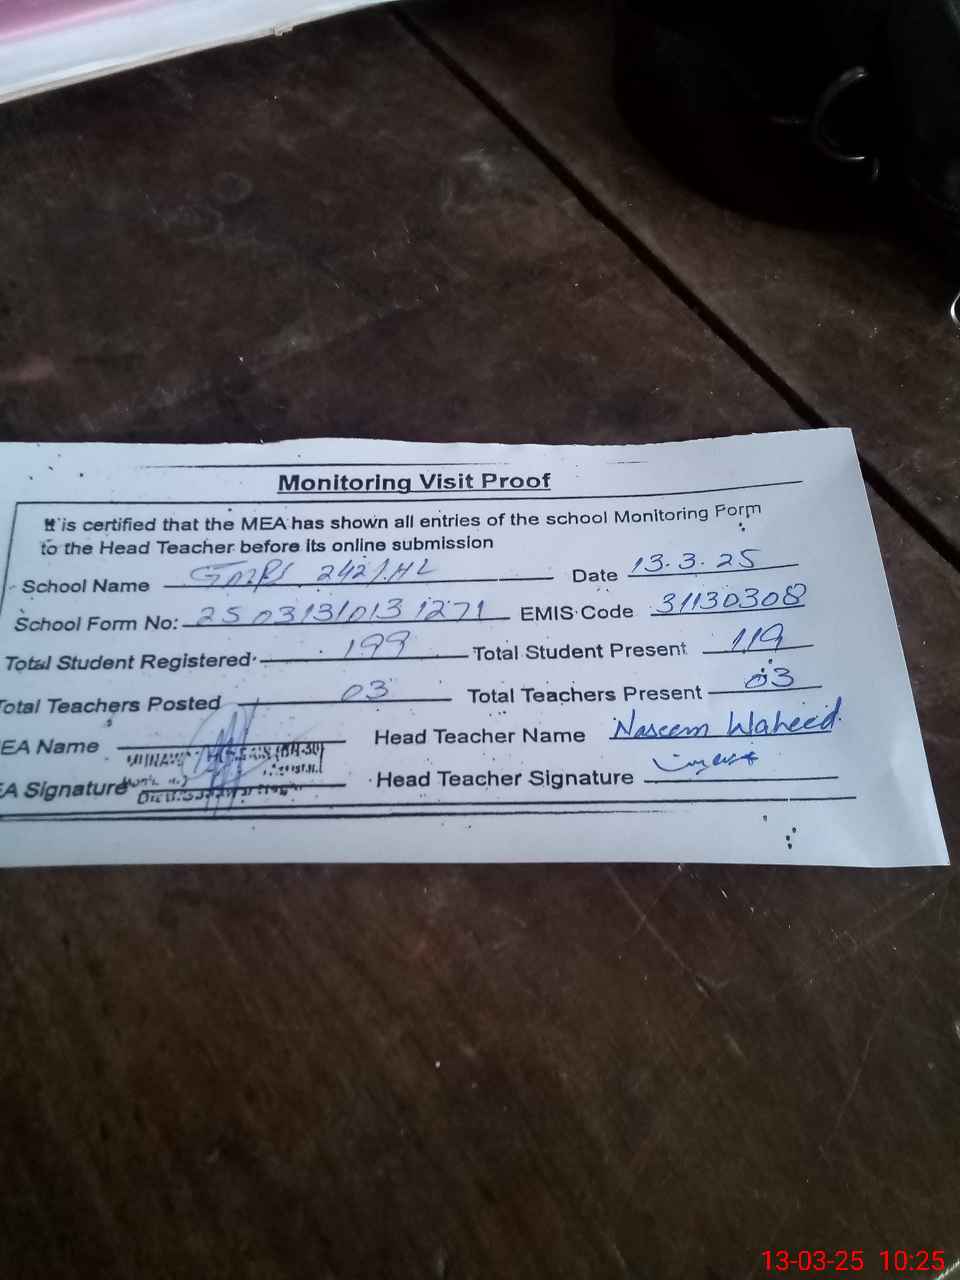 Monitoring Visit Proof
It is certified that the MEA has shown all entries of the school Monitoring Form
to the Head Teacher before its online submission
School Name 242/.HL Date 13.3.25
School Form No: 2503131013 1271 EMIS Code 31130308
Total Student Registered 199 Total Student Present 119
Total Teachers Posted 03 Total Teachers Present 03
EA Name Head Teacher Name Naseem Waheed
EA Signature Head Teacher Signature
13-03-25 10:25